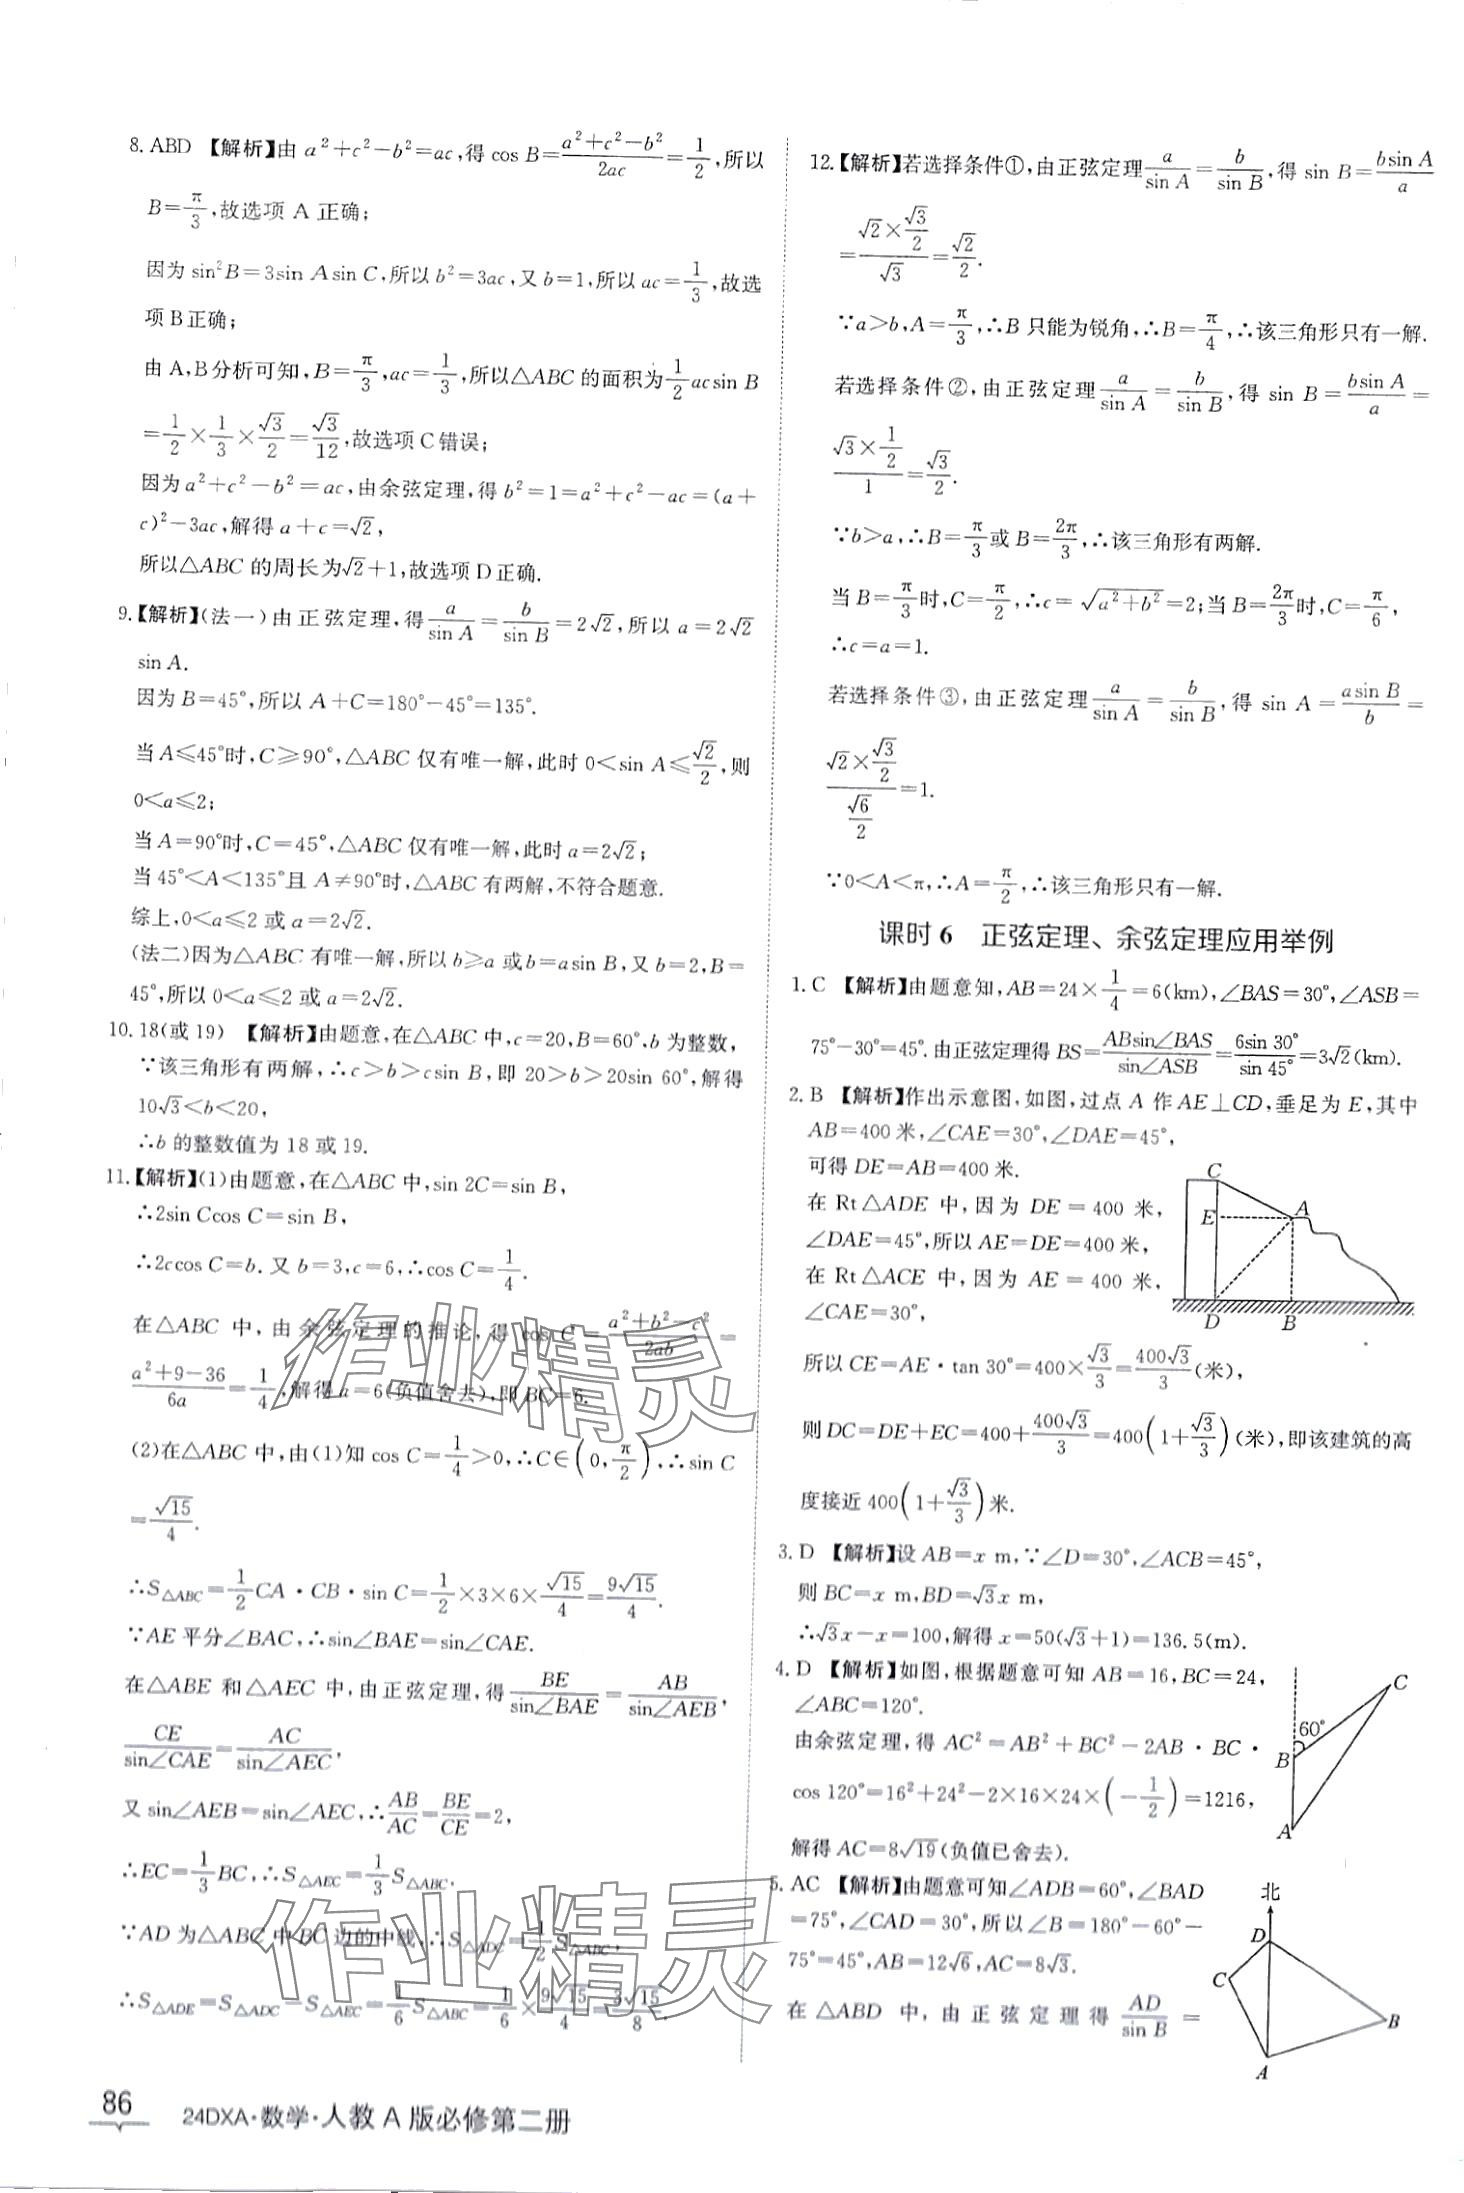 8. ABD 【解析】由 a²+c²-b²=ac,得 cos B=\frac{a²+c²-b²}{2ac}=\frac{1}{2},所以
B=\frac{π}{3},故选项 A 正确;
因为 sin²B=3sin Asin C,所以 b²=3ac,又 b=1,所以 ac=\frac{1}{3},故选
项 B 正确;
由 A,B 分析可知,B=\frac{π}{3},ac=\frac{1}{3},所以△ABC 的面积为\frac{1}{2}acsin B
=\frac{1}{2}×\frac{1}{3}×\frac{√3}{2}=\frac{√3}{12},故选项 C 错误;
因为 a²+c²-b²=ac,由余弦定理,得 b²=1=a²+c²-ac=(a+
c)²-3ac,解得 a+c=√2,
所以△ABC 的周长为√2+1,故选项 D 正确.
9.【解析】(法一)由正弦定理,得\frac{a}{sin A}=\frac{b}{sin B}=2√2,所以 a=2√2
sin A.
因为 B=45°,所以 A+C=180°-45°=135°.
当 A≤45°时,C≥90°,△ABC 仅有唯一解,此时 0<sin A≤\frac{√2}{2},则
0<a≤2;
当 A=90°时,C=45°,△ABC 仅有唯一解,此时 a=2√2;
当 45°<A<135°且 A≠90°时,△ABC 有两解,不符合题意.
综上,0<a≤2 或 a=2√2.
(法二)因为△ABC 有唯一解,所以 b≥a 或 b=asin B,又 b=2,B=
45°,所以 0<a≤2 或 a=2√2.
10. 18(或 19) 【解析】由题意,在△ABC 中,c=20,B=60°,b 为整数,
∵该三角形有两解,∴c>b>csin B,即 20>b>20sin 60°,解得
10√3<b<20,
∴b 的整数值为 18 或 19.
11.【解析】(1)由题意,在△ABC 中,sin 2C=sin B,
∴2sin Ccos C=sin B,
∴2ccos C=b.又 b=3,c=6,∴cos C=\frac{1}{4}.
在△ABC 中,由余弦定理的推论,得 cos C=\frac{a²+b²-c²}{2ab}=
\frac{a²+9-36}{6a}=\frac{1}{4},解得 a=6(负值舍去),即 BC=6.
(2)在△ABC 中,由(1)知 cos C=\frac{1}{4}>0,∴C∈(0,\frac{π}{2}),∴sin C
=\frac{√15}{4}.
∴S△ABC=\frac{1}{2}CA·CB·sin C=\frac{1}{2}×3×6×\frac{√15}{4}=\frac{9√15}{4}.
∵AE 平分∠BAC,∴sin∠BAE=sin∠CAE.
在△ABE 和△AEC 中,由正弦定理,得\frac{BE}{sin∠BAE}=\frac{AB}{sin∠AEB},
\frac{CE}{sin∠CAE}=\frac{AC}{sin∠AEC},
又 sin∠AEB=sin∠AEC,∴\frac{AB}{AC}=\frac{BE}{CE}=2,
∴EC=\frac{1}{3}BC,∴S△AEC=\frac{1}{3}S△ABC.
∵AD 为△ABC 中 BC 边的中线,∴S△ADC=\frac{1}{2}S△ABC,
∴S△ADE=S△ADC-S△AEC=\frac{1}{6}S△ABC=\frac{1}{6}×\frac{9√15}{4}=\frac{3√15}{8}.
12.【解析】若选择条件①,由正弦定理\frac{a}{sin A}=\frac{b}{sin B},得 sin B=\frac{bsin A}{a}
=\frac{√2×\frac{√3}{2}}{√3}=\frac{√2}{2}.
∵a>b,A=\frac{π}{3},∴B 只能为锐角,∴B=\frac{π}{4},∴该三角形只有一解.
若选择条件②,由正弦定理\frac{a}{sin A}=\frac{b}{sin B},得 sin B=\frac{bsin A}{a}=
\frac{√3×\frac{1}{2}}{1}=\frac{√3}{2}.
∵b>a,∴B=\frac{π}{3}或 B=\frac{2π}{3},∴该三角形有两解.
当 B=\frac{π}{3}时,C=\frac{π}{2},∴c=√(a²+b²)=2;当 B=\frac{2π}{3}时,C=\frac{π}{6},
∴c=a=1.
若选择条件③,由正弦定理\frac{a}{sin A}=\frac{b}{sin B},得 sin A=\frac{asin B}{b}=
\frac{√2×\frac{√3}{2}}{\frac{√6}{2}}=1.
∵0<A<π,∴A=\frac{π}{2},∴该三角形只有一解.
课时 6 正弦定理、余弦定理应用举例
1. C 【解析】由题意知,AB=24×\frac{1}{4}=6(km),∠BAS=30°,∠ASB=
75°-30°=45°.由正弦定理得 BS=\frac{ABsin∠BAS}{sin∠ASB}=\frac{6sin 30°}{sin 45°}=3√2(km).
2. B 【解析】作出示意图,如图,过点 A 作 AE⊥CD,垂足为 E,其中
AB=400 米,∠CAE=30°,∠DAE=45°,
可得 DE=AB=400 米.
在 Rt△ADE 中,因为 DE=400 米,
∠DAE=45°,所以 AE=DE=400 米,
在 Rt△ACE 中,因为 AE=400 米,
∠CAE=30°,
C
A
E
D
B
所以 CE=AE·tan 30°=400×\frac{√3}{3}=\frac{400√3}{3}(米),
则 DC=DE+EC=400+\frac{400√3}{3}=400(1+\frac{√3}{3})(米),即该建筑的高
度接近 400(1+\frac{√3}{3})米.
3. D 【解析】设 AB=x m,∵∠D=30°,∠ACB=45°,
则 BC=x m,BD=√3x m,
∴√3x-x=100,解得 x=50(√3+1)=136.5(m).
4. D 【解析】如图,根据题意可知 AB=16,BC=24,
∠ABC=120°.
由余弦定理,得 AC²=AB²+BC²-2AB·BC·
cos 120°=16²+24²-2×16×24×(-\frac{1}{2})=1216,
解得 AC=8√19(负值已舍去).
C
60°
B
A
5. AC 【解析】由题意可知∠ADB=60°,∠BAD
=75°,∠CAD=30°,所以∠B=180°-60°-
75°=45°,AB=12√6,AC=8√3.
在△ABD 中,由正弦定理得\frac{AD}{sin B}=
北
D
C
B
A
86
24DXA·数学·人教 A 版必修第二册
作业精灵
作业精灵